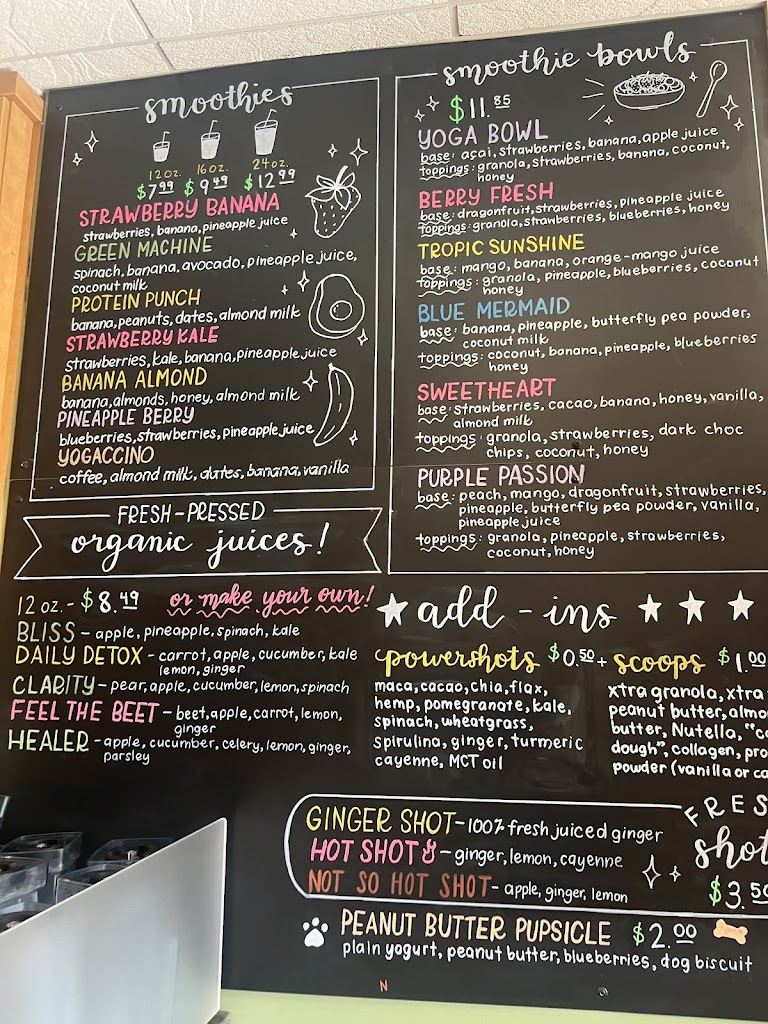 smoothies
12 oz. 16 oz. 24 oz.
$7.99 $9.49 $12.99
STRAWBERRY BANANA
strawberries, banana, pineapple juice
GREEN MACHINE
spinach, banana, avocado, pineapple juice,
coconut milk
PROTEIN PUNCH
banana, peanuts, dates, almond milk
STRAWBERRY KALE
strawberries, kale, banana, pineapple juice
BANANA ALMOND
banana, almonds, honey, almond milk
PINEAPPLE BERRY
blueberries, strawberries, pineapple juice
YOGACCINO
coffee, almond milk, dates, banana, vanilla
FRESH-PRESSED
organic juices!
12 oz. - $8.49 or make your own!
BLISS - apple, pineapple, spinach, kale
DAILY DETOX - carrot, apple, cucumber, kale
lemon, ginger
CLARITY - pear, apple, cucumber, lemon, spinach
FEEL THE BEET - beet, apple, carrot, lemon,
ginger
HEALER - apple, cucumber, celery, lemon, ginger,
parsley
smoothie bowls
$11.85
YOGA BOWL
base: açai, strawberries, banana, apple juice
toppings: granola, strawberries, banana, coconut,
honey
BERRY FRESH
base: dragonfruit, strawberries, pineapple juice
toppings: granola, strawberries, blueberries, honey
TROPIC SUNSHINE
base: mango, banana, orange-mango juice
toppings: granola, pineapple, blueberries, coconut
honey
BLUE MERMAID
base: banana, pineapple, butterfly pea powder,
coconut milk
toppings: coconut, banana, pineapple, blueberries
honey
SWEETHEART
base: strawberries, cacao, banana, honey, vanilla,
almond milk
toppings: granola, strawberries, dark choc
chips, coconut, honey
PURPLE PASSION
base: peach, mango, dragonfruit, strawberries,
pineapple, butterfly pea powder, vanilla,
pineapple juice
toppings: granola, pineapple, strawberries,
coconut, honey
add-ins
powershots $0.50+
maca, cacao, chia, flax,
hemp, pomegranate, kale,
spinach, wheatgrass,
spirulina, ginger, turmeric
cayenne, MCT oil
scoops $1.00
xtra granola, xtra
peanut butter, almo
butter, Nutella, "co
dough", collagen, pro
powder (vanilla or ca
FRES
shot
$3.50
GINGER SHOT - 100% fresh juiced ginger
HOT SHOT - ginger, lemon, cayenne
NOT SO HOT SHOT - apple, ginger, lemon
PEANUT BUTTER PUPSICLE $2.00
plain yogurt, peanut butter, blueberries, dog biscuit
N